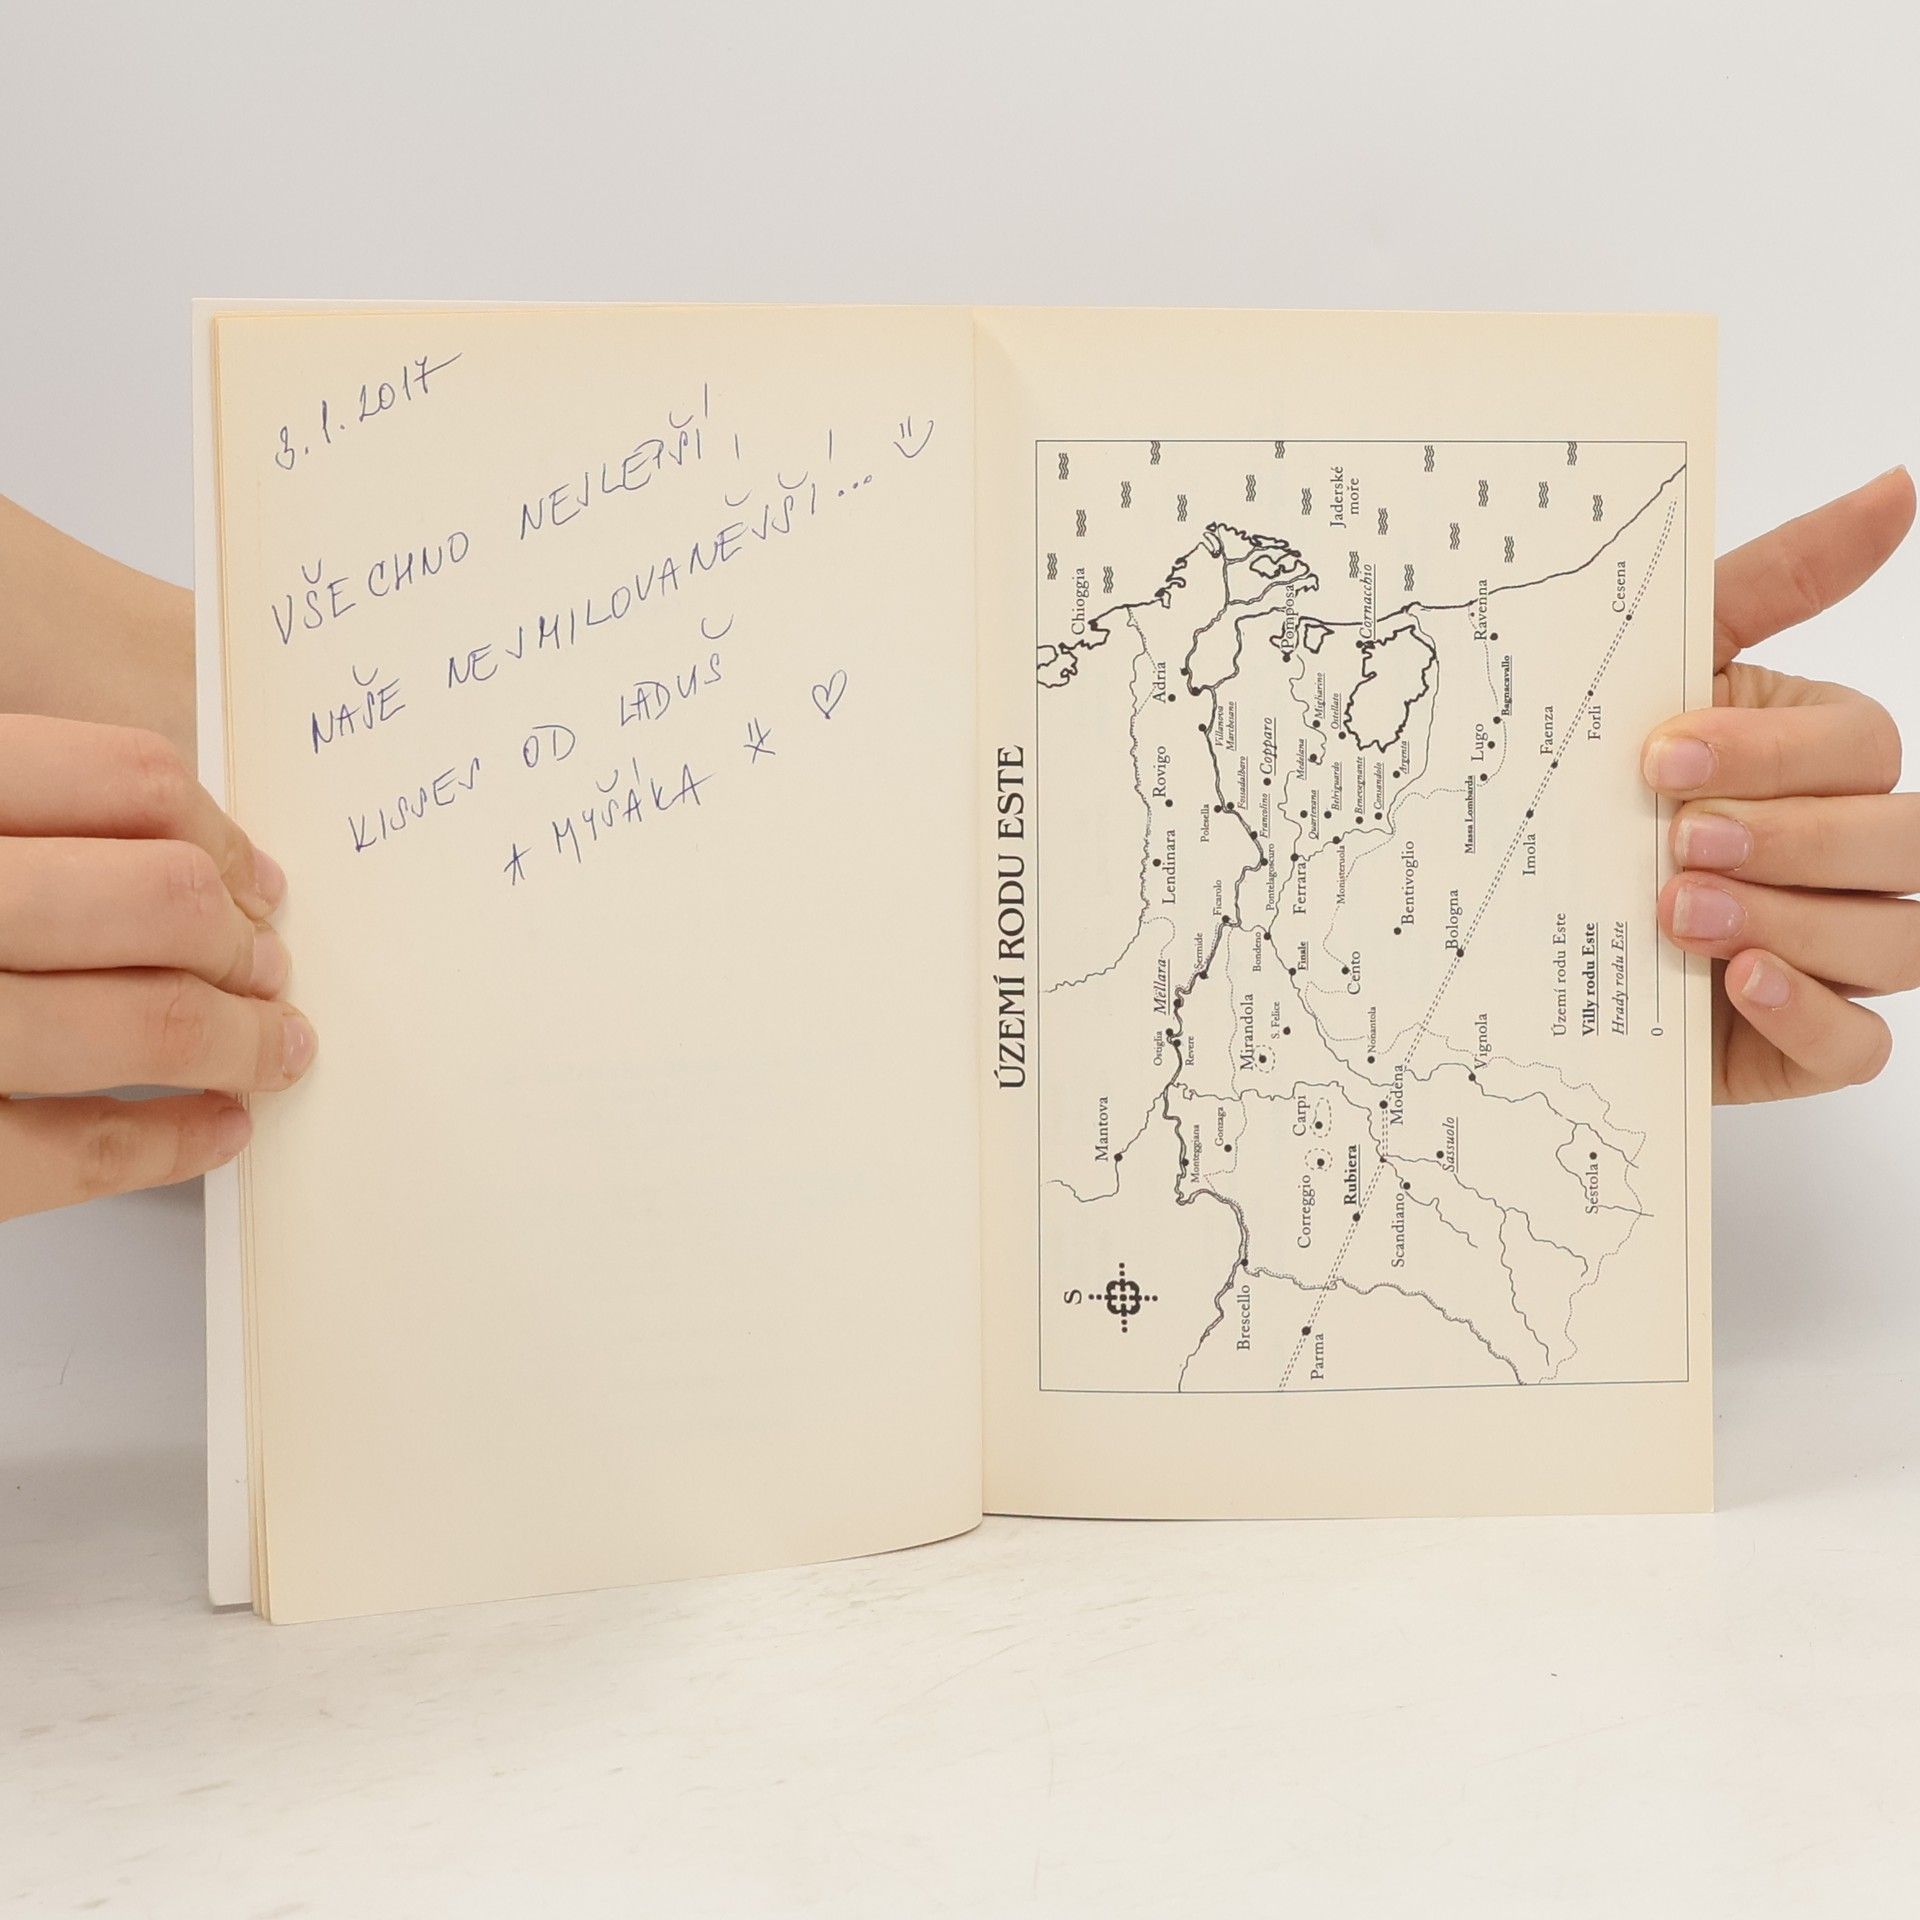 3.1.2017
VŠECHNO NEJLEPŠÍ,
NAŠE NEJMILOVANĚJŠÍ!...
KISSES OD LADUŠ
+ MYŠÁKA
ÚZEMÍ RODU ESTE
S
Chioggia
Jaderské
moře
Mantova
Adria
Rovigo
Lendinara
Méllara
Ostiglia
Revere
Sermide
Ficarolo
Polesella
Villanova
Marchesano
Fossadalbaro
Copparo
Francolino
Pontelagoscuro
Pomposa
Comacchio
Migliarino
Ostellato
Medelana
Quartesana
Belriguardo
Benevegnante
Consandolo
Argenta
Ferrara
Monisteruolo
Bondeno
Finale
Cento
Bentivoglio
Mirandola
S. Felice
Monteggiana
Gonzaga
Carpi
Correggio
Rubiera
Brescello
Parma
Scandiano
Modena
Nonantola
Sassuolo
Vignola
Sestola
Bologna
Imola
Faenza
Forlì
Cesena
Massa Lombarda
Lugo
Bagnacavallo
Ravenna
Území rodu Este
Villy rodu Este
Hrady rodu Este
0